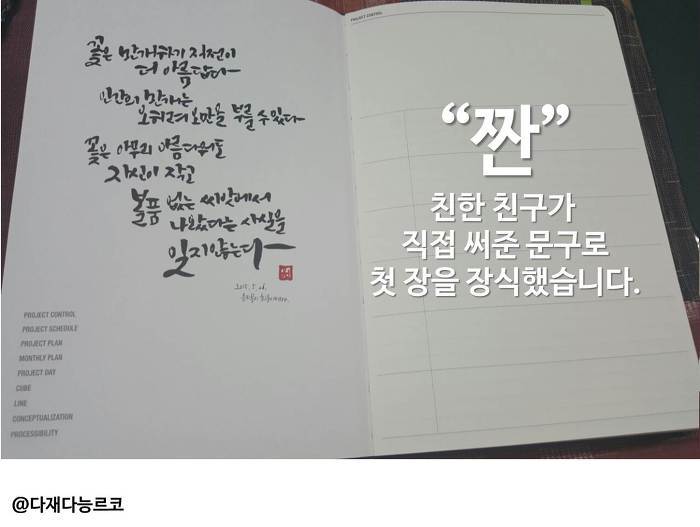 꽃은 만개하기 직전이
더 아름답다
인간의 만개는
오히려 오만을 부를 수 있다
꽃은 아무리 아름다워도
자신이 작고
볼품 없는 씨앗에서
나왔다는 사실을
잊지 않는다
PROJECT CONTROL
PROJECT SCHEDULE
PROJECT PLAN
MONTHLY PLAN
PROJECT DAY
CUBE
LINE
CONCEPTUALIZATION
PROCESSIBILITY
PROJECT CONTROL
“짠”
친한 친구가
직접 써준 문구로
첫 장을 장식했습니다.
@다재다능르코